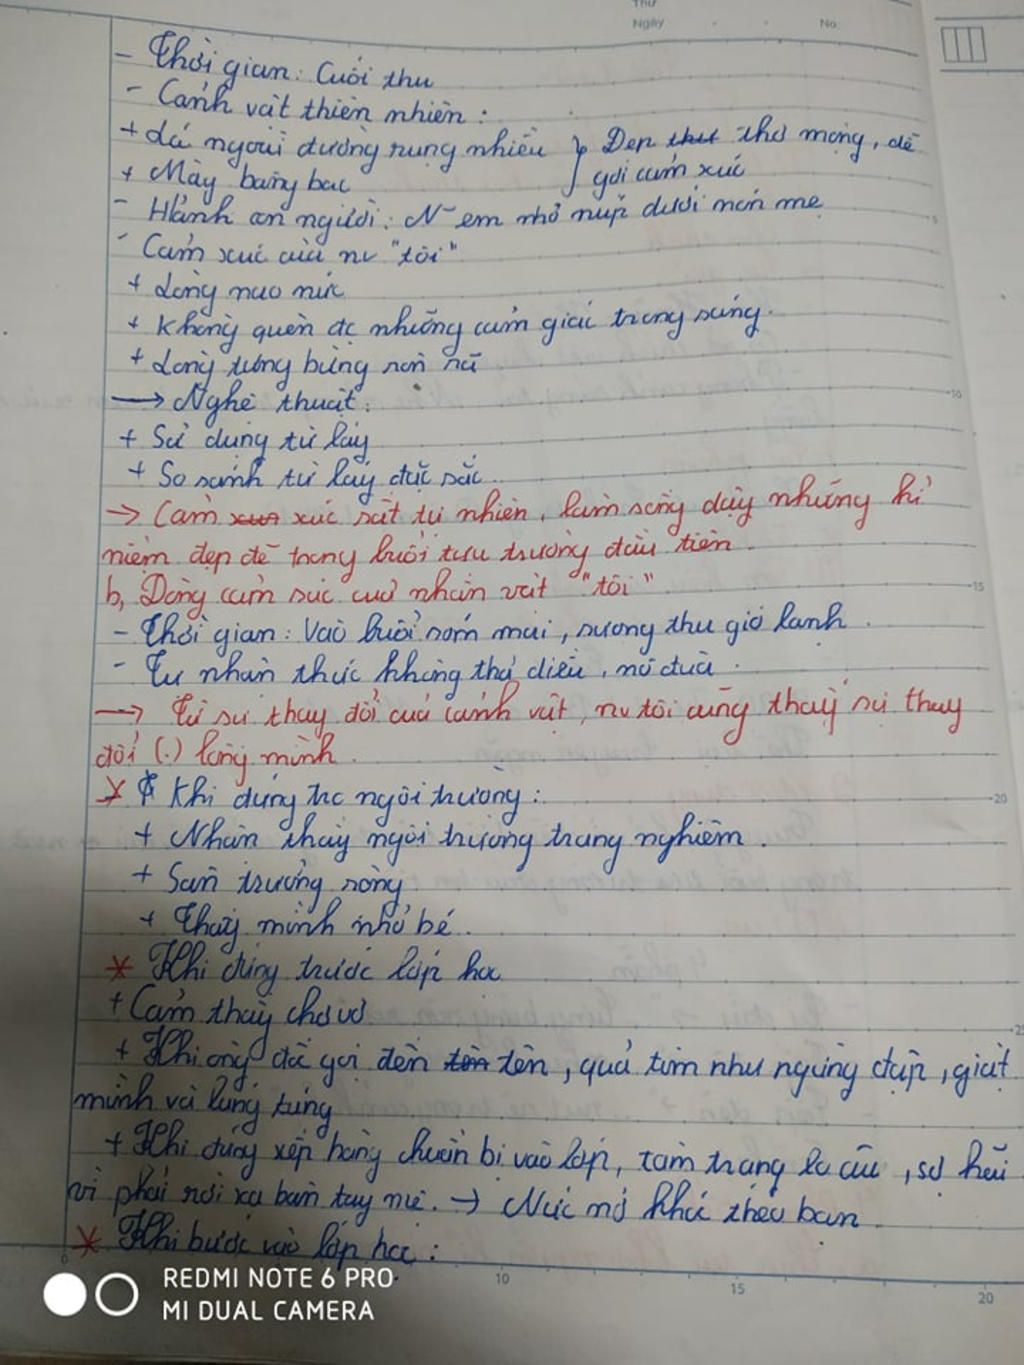 Thứ
Ngày No.
- Thời gian: Cuối thu
- Cảnh vật thiên nhiên:
+ Lá ngoài đường rụng nhiều } Đẹp thơ mộng, dễ
+ Mây bàng bạc gợi cảm xúc
- Hình ảnh người: N~ em nhỏ núp dưới nón mẹ
- Cảm xúc của nv "tôi"
+ Lòng nao nức
+ Không quên đc những cảm giác trong sáng.
+ Lòng tưng bừng rộn rã
→ Nghệ thuật:
+ Sử dụng từ láy
+ So sánh từ láy đặc sắc
→ Cảm xúc rất tự nhiên, làm sống dậy những kỉ
niệm đẹp đẽ trong buổi tựu trường đầu tiên
b, Dòng cảm xúc của nhân vật "tôi"
- Thời gian: Vào buổi sớm mai, sương thu gió lạnh.
- Tự nhận thức không thả diều, nô đùa.
→ Từ sự thay đổi của cảnh vật, nv tôi cũng thấy sự thay
đổi (.) lòng mình.
* Khi đứng trc ngôi trường:
+ Nhận thấy ngôi trường trang nghiêm.
+ Sân trường rộng
+ Thấy mình nhỏ bé.
* Khi đứng trước lớp học
+ Cảm thấy chơ vơ
+ Khi ông đốc gọi đến tên, quả tim như ngừng đập, giật
mình và lúng túng
+ Khi đứng xếp hàng chuẩn bị vào lớp, tâm trạng lo âu, sợ hãi
vì phải rời xa bàn tay mẹ. → Nức nở khóc theo bạn
* Khi bước vào lớp học:
5
10
15
20
25
0 10 15 20
REDMI NOTE 6 PRO
MI DUAL CAMERA